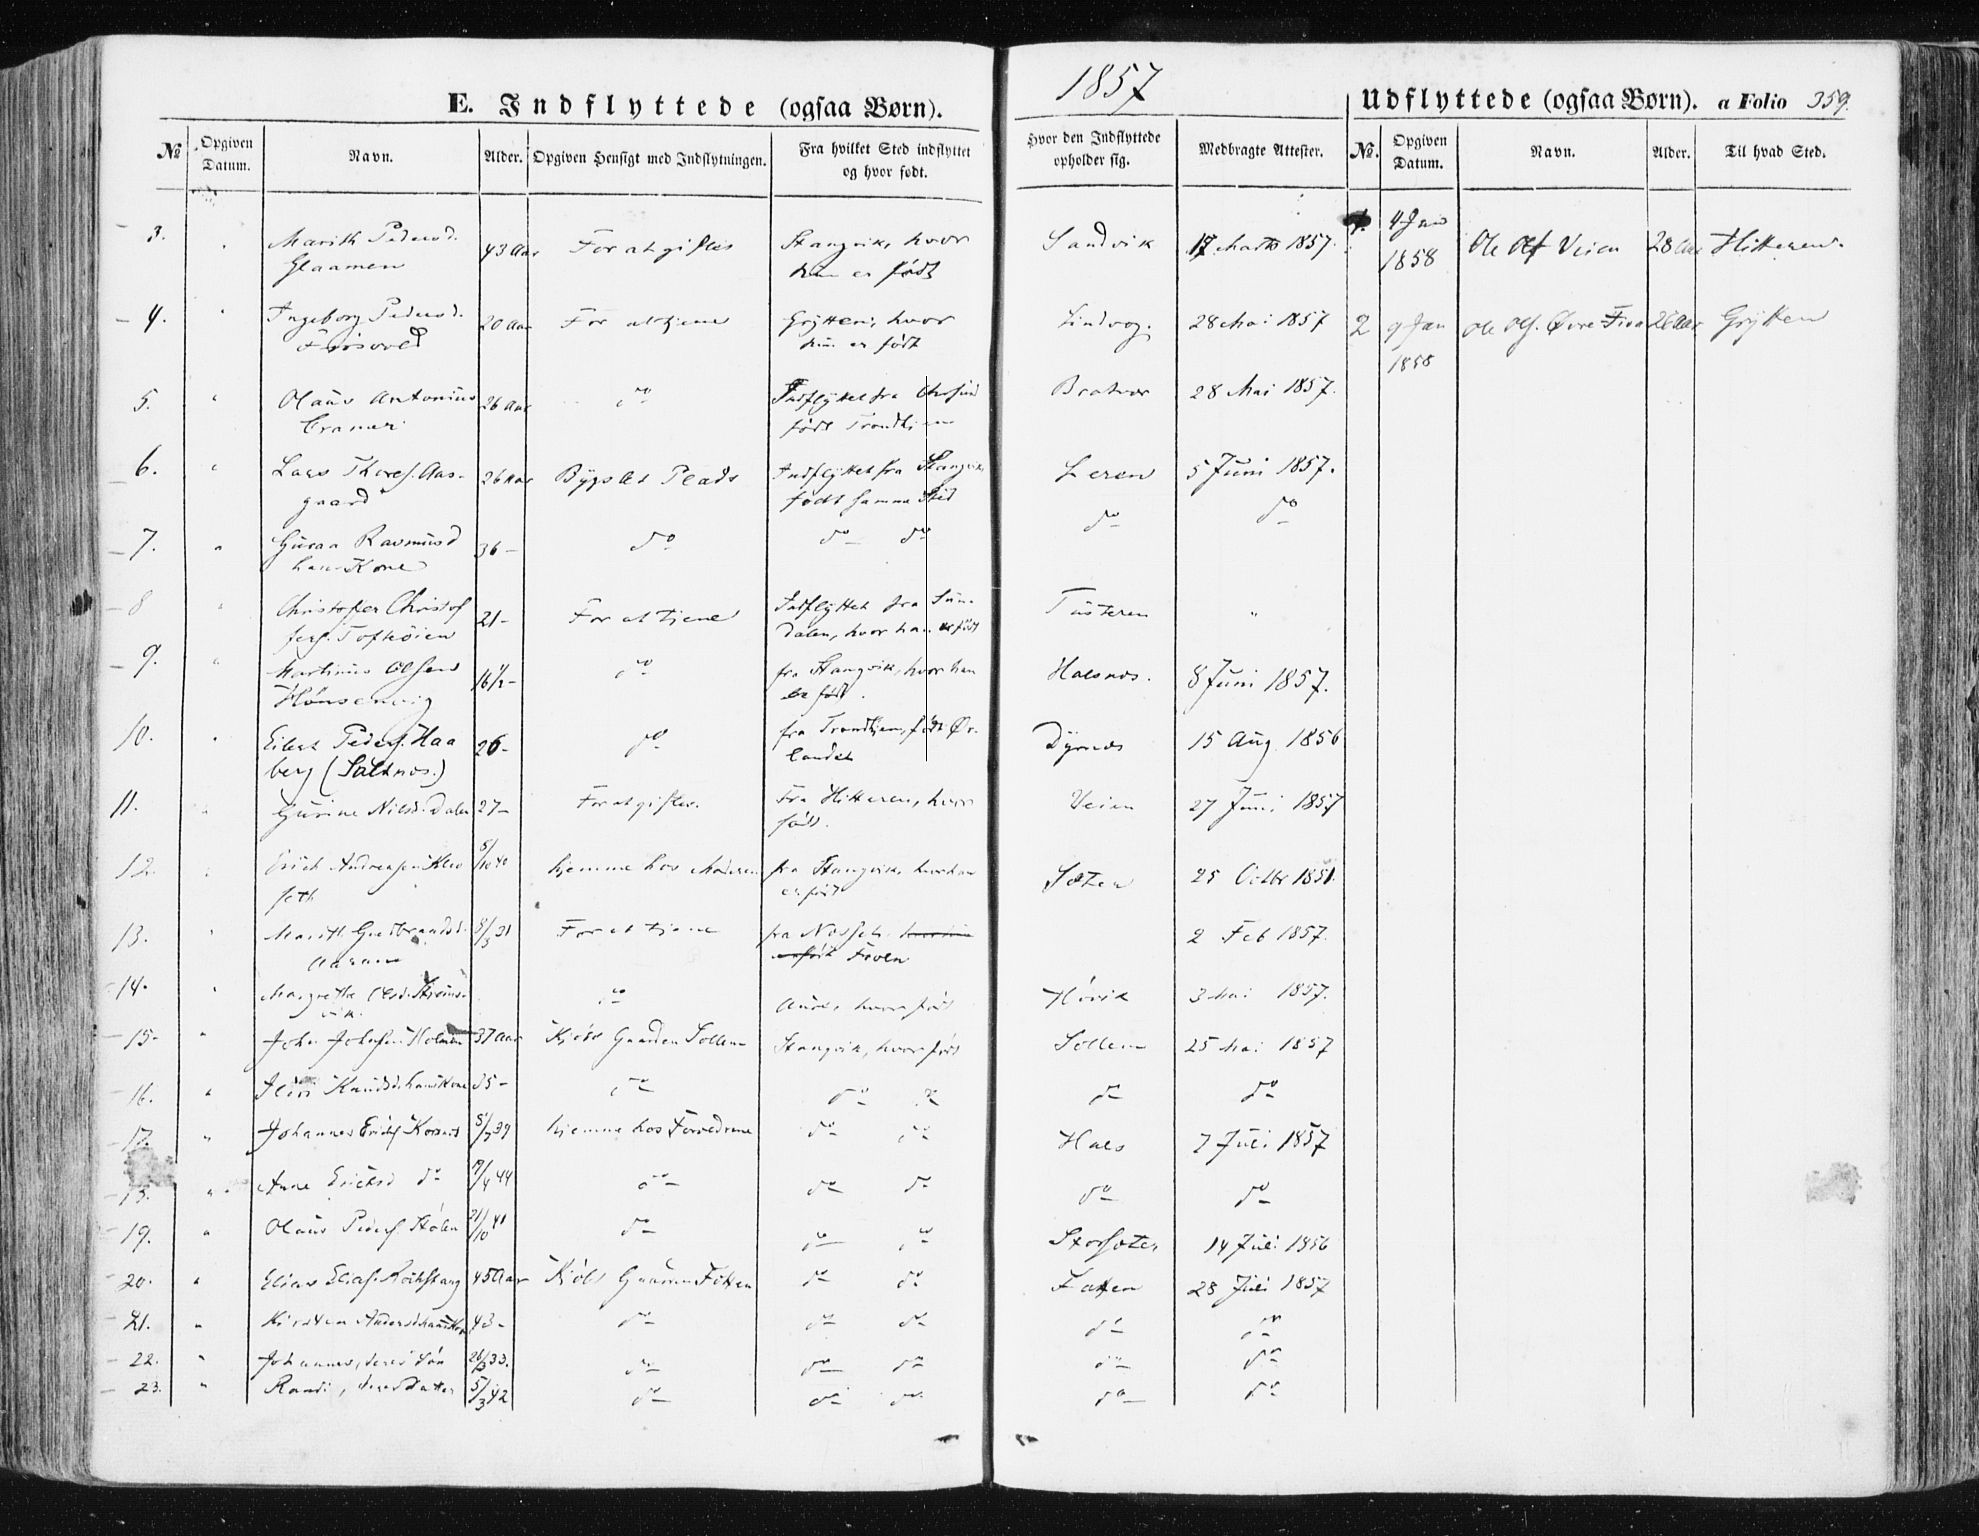 1857
E. Indflyttede (ogsaa Børn).
Udflyttede (ogsaa Børn). a Folio 359.
No
Opgiven Datum.
Navn.
Alder.
Opgiven Hensigt med Indflytningen.
Fra hvilket Sted indflyttet og hvor født.
Hvor den Indflyttede opholder sig.
Medbragte Attester.
No.
Opgiven Datum.
Navn.
Alder.
Til hvad Sted.
3. " Marith Pedersd. 43 Aar For at giftes Stangvik, hvor Sandvik 17 Marts 1857.
Glaamen hun er født
4. " Ingeborg Pedersd. 20 Aar For at tjene Grytten, hvor Lindvog. 28 Mai 1857
hun er født
5. " Olaus Antonius 26 Aar do Indflyttet fra Chrsund Bratvær 28 Mai 1857.
Cramer født Trondhjem
6. " Lars Thores. Aas- 26 Aar Bygslet Plads Indflyttet fra Stangvik Leren 5 Juni 1857.
gaard født samme Sted
7. " Guraa Rasmusd 36 - do do do do do
hans Kone
8 " Christoffer Christof 21 - For at tjene Indflyttet fra Sun- Tusteren "
fers. Tofhøien dalen, hvor han er født
9. " Martinus Olsen 16 1/2 - do fra Stangvik, hvor han Halsnæs. 8 Juni 1857.
Hønsenvig er født.
10. " Eilert Peders. Haa 26 - do fra Trondhjem, født Ør- Dyrnæs 15 Aug. 1856
berg (Saltnæs.) landet
11. " Gurine Nilsd. Dalen 27 - For at giftes. Fra Hitteren, hvor Veien 27 Juni 1857
født.
12. " Erich Andreasen Klev 5/10 40 hjemme hos Moderen fra Stangvik, hvor han Sæter 25 Octbr 1851.
seth er født
13. " Marith Gudbrandsd. 8/3 31 For at tjene fra Næsset. 2 Feb 1857.
14. " Margrethe Olsd. do Aure, hvor født Hørvik 3 Mai 1857.
15. " John Johnsen Holmen 37 Aar Kjøbt Gaarden Sollem Stangvik, hvor født Sollem 25 Mai 1857
16. " Knudsd. hans Kone 35 - do do do do do
17. " Johannes Erichs. Korsnæs 5/7 39 hjemme hos Forældrene do do Hals 7 Juli 1857
18. " Ane Ericksd do 19/4 44 do do do do do
19. " Olaus Peders. Stølen 21/10 41 do do do Storsæter 14 Juli 1856
20. " Elias Elias. 45 Aar Kjøbt Gaarden do do 28 Juli 1857
21. " Kirsten Andersd. hans Kone 43 - do do do do do
22. " Johannes, deres Søn 33. do do do do do
23. " Randi, deres Datter 5/3 42 do do do do do
1. 4 Jan Ole Ols Veien 28 Aar Hitteren
1858
2 9 Jan Ole Ols. Øvre Fiva 26 Aar Grytten
1858